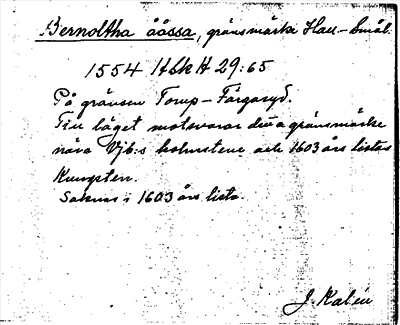 Bernoltha åässa, gränsmärke Hall.-Smål.
1554 HSkH 29:65
På gränsen Torup – Färgaryd.
Till läget motsvarar detta gränsmärke
nära Vjb:s holmstene och 1603 års listas
Kungsten.
Saknas i 1603 års lista.
J. Kalén